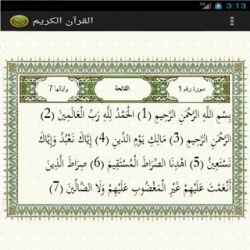 3:13
القرآن الكريم
سورة رقم 1
الفاتحة
واياتها 7
بِسْمِ اللَّهِ الرَّحْمَنِ الرَّحِيمِ (1) الْحَمْدُ لِلَّهِ رَبِّ الْعَالَمِينَ (2)
الرَّحْمَنِ الرَّحِيمِ (3) مَالِكِ يَوْمِ الدِّينِ (4) إِيَّاكَ نَعْبُدُ وَإِيَّاكَ
نَسْتَعِينُ (5) اهْدِنَا الصِّرَاطَ الْمُسْتَقِيمَ (6) صِرَاطَ الَّذِينَ
أَنْعَمْتَ عَلَيْهِمْ غَيْرِ الْمَغْضُوبِ عَلَيْهِمْ وَلَا الضَّالِّينَ (7)